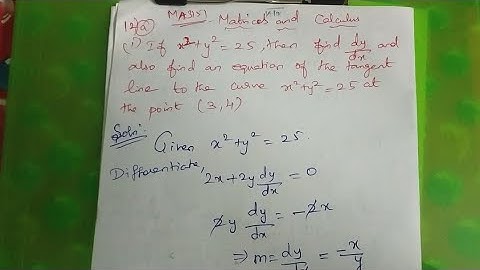 MA3151 Matrices and Calculus
12) a)
(i) If x² + y² = 25, then find dy/dx and
also find an equation of the tangent
line to the curve x² + y² = 25 at
the point (3,4)
Soln:
Given x² + y² = 25.
Differentiate,
2x + 2y dy/dx = 0
2y dy/dx = -2x
⇒ m = dy/dx = -x/y